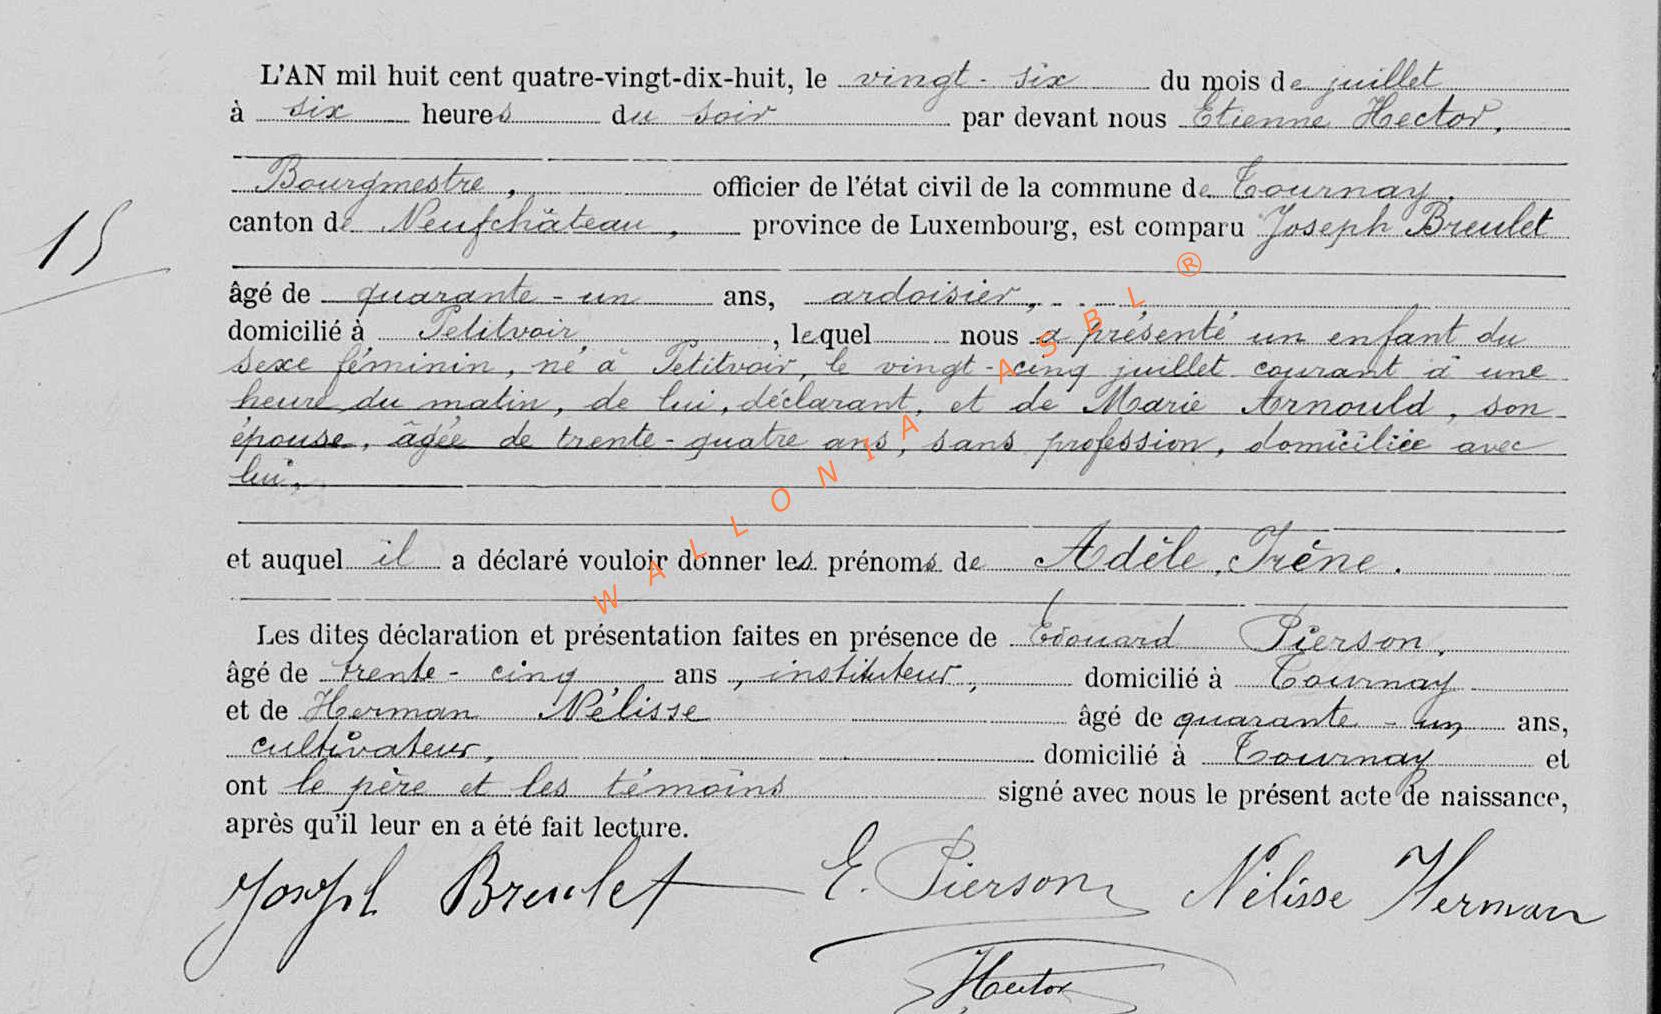 L'AN mil huit cent quatre-vingt-dix-huit, le vingt-six du mois de juillet
à six heures du soir par devant nous Etienne Hector,
Bourgmestre, officier de l'état civil de la commune de Tournay,
canton de Neufchâteau, province de Luxembourg, est comparu Joseph Breulet
15
âgé de quarante-un ans, ardoisier,
domicilié à Petitvoir, lequel nous a présenté un enfant du
sexe féminin, né à Petitvoir, le vingt-cinq juillet courant à une
heure du matin, de lui, déclarant, et de Marie Arnould, son
épouse, âgée de trente-quatre ans, sans profession, domiciliée avec
lui,
et auquel il a déclaré vouloir donner les prénoms de Adèle, Irène.
Les dites déclaration et présentation faites en présence de Edouard Pierson,
âgé de trente-cinq ans, instituteur, domicilié à Tournay
et de Herman Nélisse âgé de quarante-un ans,
cultivateur, domicilié à Tournay et
ont le père et les témoins signé avec nous le présent acte de naissance,
après qu'il leur en a été fait lecture.
Joseph Breulet E. Pierson Nélisse Herman
Hector
WALLONIA ASBL ®